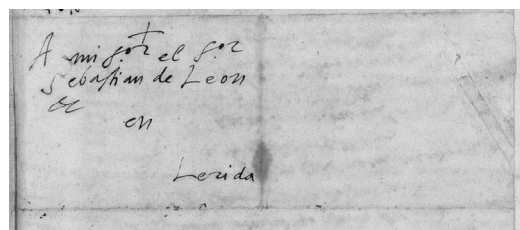 A mi s.or el s.or
Sebastian de Leon
etc
en
Lerida